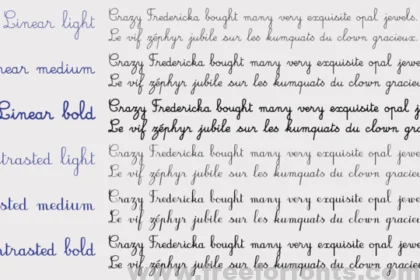 Linear light
Crazy Fredericka bought many very exquisite opal jewels.
Le vif zéphyr jubile sur les kumquats du clown gracieux.
near medium
Crazy Fredericka bought many very exquisite opal jewe
Le vif zéphyr jubile sur les kumquats du clown gracie
Linear bold
Crazy Fredericka bought many very exquisite opal jew
Le vif zéphyr jubile sur les kumquats du clown gra
ntrasted light
Crazy Fredericka bought many very exquisite opal jewels.
Le vif zéphyr jubile sur les kumquats du clown gracieux.
asted medium
Crazy Fredericka bought many very exquisite opal jewe
Le vif zéphyr jubile sur les kumquats du clown gracie
ntrasted bold
Crazy Fredericka bought many very exquisite opal jew
Le vif zéphyr jubile sur les kumquats du clown gra